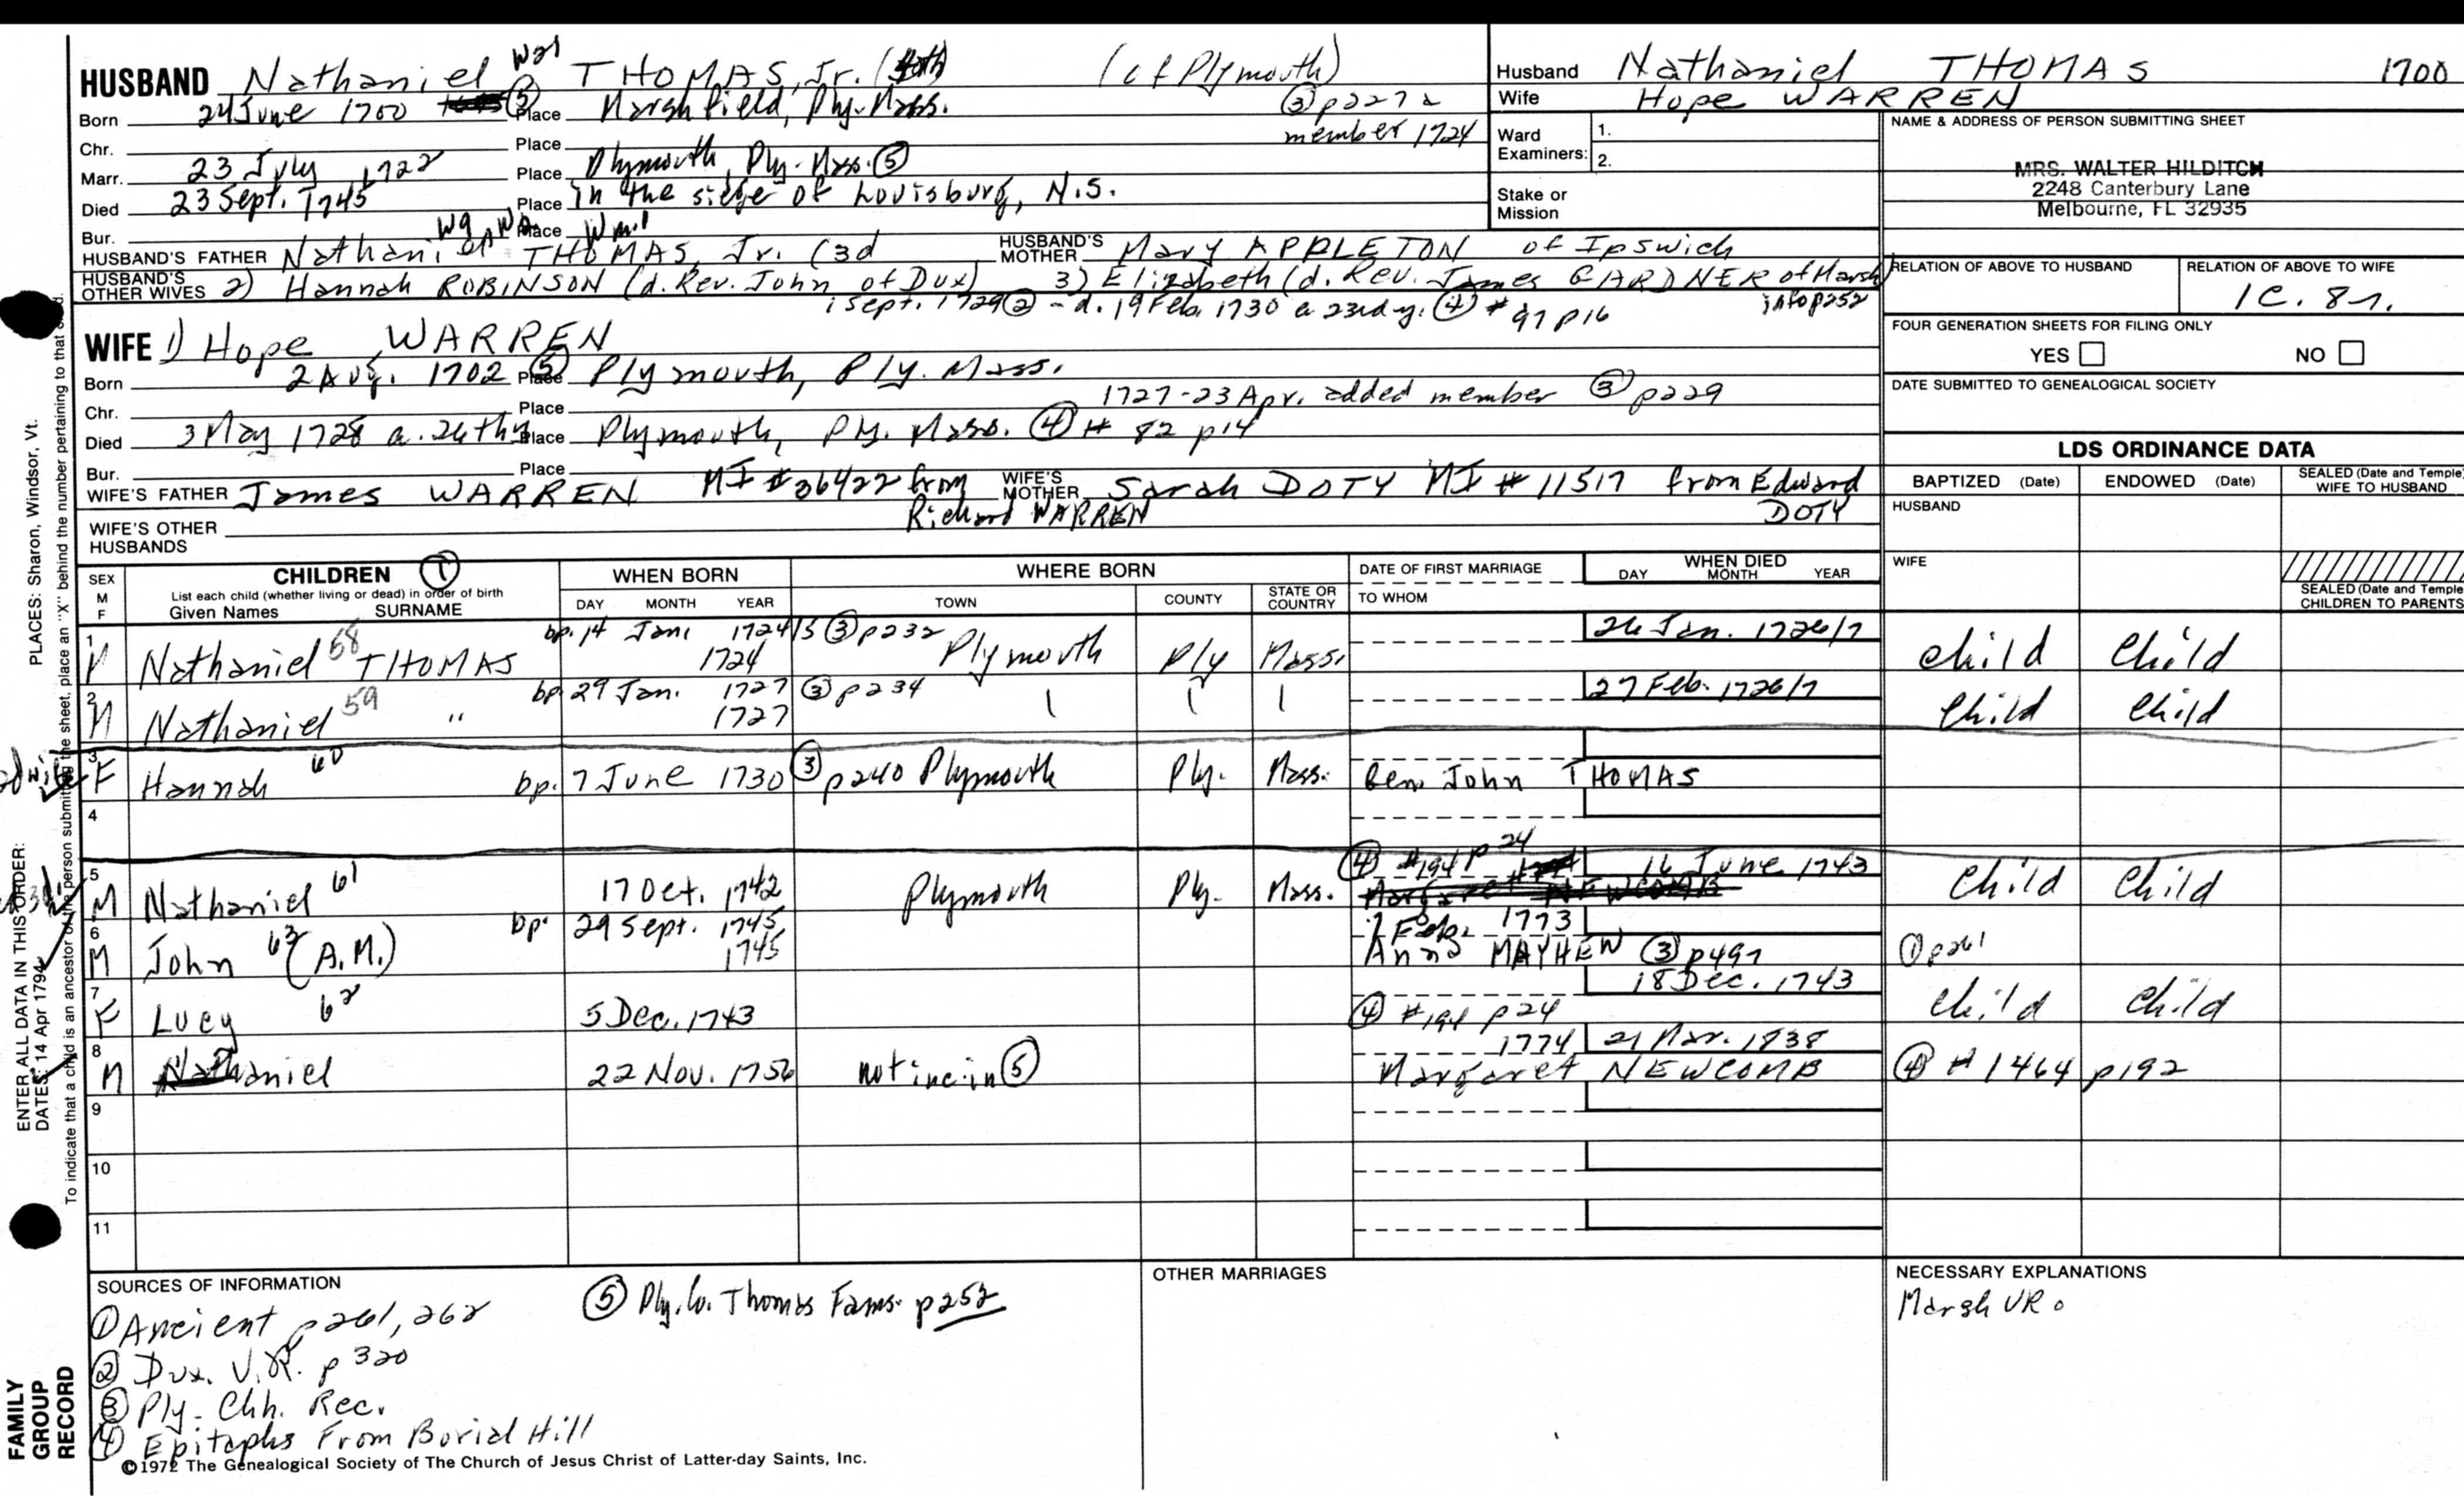 HUSBAND Nathaniel W21 THOMAS, Jr. (of Plymouth)
Born 24 June 1700 ⑤ Place Marshfield, Ply. Mass. ③ p227 a
Chr. Place member 1724
Marr. 23 July 1722 Place Plymouth, Ply. Mass. ⑤
Died 23 Sept. 1745 Place in the siege of Louisburg, N.S.
Bur. Place
HUSBAND'S FATHER Nathaniel THOMAS, Jr. (3d HUSBAND'S MOTHER Mary APPLETON of Ipswich
HUSBAND'S OTHER WIVES 2) Hannah ROBINSON (d. Rev. John of Dux) 3) Elizabeth (d. Rev. James GARDNER of Marsh)
1 Sept. 1729 ② - d. 19 Feb. 1730 a 23rd y. ④ # 97 p16 info p252
WIFE 1) Hope WARREN
Born 2 Aug. 1702 ⑤ Place Ply mouth, Ply. Mass.
Chr. Place 1727-23 Apr. added member ③ p229
Died 3 May 1728 a. 26th y Place Plymouth, Ply. Mass. ④ # 82 p14
Bur. Place
WIFE'S FATHER James WARREN MI # 36422 from Richard WARREN WIFE'S MOTHER Sarah DOTY MI # 11517 from Edward DOTY
WIFE'S OTHER HUSBANDS
Husband Nathaniel THOMAS 1700
Wife Hope WARREN
Ward Examiners: 1.
2.
Stake or Mission
NAME & ADDRESS OF PERSON SUBMITTING SHEET
MRS. WALTER HILDITCH
2248 Canterbury Lane
Melbourne, FL 32935
RELATION OF ABOVE TO HUSBAND RELATION OF ABOVE TO WIFE
1C. 8r.
FOUR GENERATION SHEETS FOR FILING ONLY
YES NO
DATE SUBMITTED TO GENEALOGICAL SOCIETY
LDS ORDINANCE DATA
BAPTIZED (Date) ENDOWED (Date) SEALED (Date and Temple) WIFE TO HUSBAND
HUSBAND
WIFE
SEALED (Date and Temple) CHILDREN TO PARENTS
SEX M F CHILDREN ① WHEN BORN WHERE BORN DATE OF FIRST MARRIAGE WHEN DIED
List each child (whether living or dead) in order of birth
Given Names SURNAME DAY MONTH YEAR TOWN COUNTY STATE OR COUNTRY TO WHOM DAY MONTH YEAR
1 bp. 14 Jan. 1724/5 ③ p232 26 Jan. 1726/7
M Nathaniel 58 THOMAS 1724 Plymouth Ply Mass. child child
2 bp 29 Jan. 1727 ③ p234 27 Feb. 1726/7
M Nathaniel 59 " 1727 child child
3 F Hannah 60 bp. 7 June 1730 ③ p240 Plymouth Ply. Mass. Gen. John THOMAS
4
5 ④ #194 p24 16 June 1743
M Nathaniel 61 17 Oct. 1742 Plymouth Ply. Mass. child child
6 bp. 29 Sept. 1745 7 Feb. 1773
M John 63 (A.M.) 1745 Anna MAYHEW ③ p497 ① p261
7 18 Dec. 1743
F Lucy 62 5 Dec. 1743 ④ #194 p24 child child
8 1774 21 Mar. 1838
M Nathaniel 22 Nov. 1756 not inc. in ⑤ Margaret NEWCOMB ④ # 1464 p192
9
10
11
SOURCES OF INFORMATION
① Ancient p261, 262
② Dux. V.R. p 320
③ Ply. Chh. Rec.
④ Epitaphs From Burial Hill
⑤ Ply. Co. Thomas Fams. p252
OTHER MARRIAGES
NECESSARY EXPLANATIONS
Marsh VR o
©1972 The Genealogical Society of The Church of Jesus Christ of Latter-day Saints, Inc.
FAMILY GROUP RECORD
ENTER ALL DATA IN THIS ORDER:
DATES: 14 Apr 1794
PLACES: Sharon, Windsor, Vt.
To indicate that a child is an ancestor of the person submitting the sheet, place an "X" behind the number pertaining to that child.